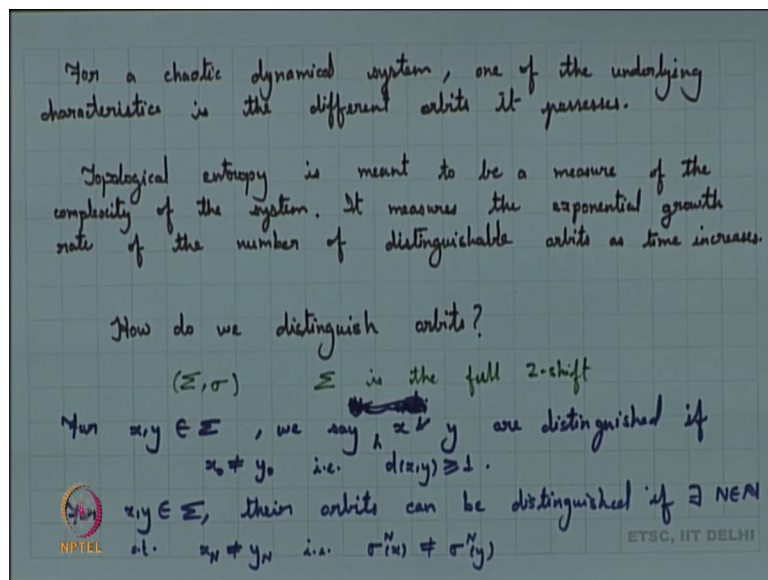 For a chaotic dynamical system, one of the underlying
characteristics is the different orbits it possesses.
Topological entropy is meant to be a measure of the
complexity of the system. It measures the exponential growth
rate of the number of distinguishable orbits as time increases.
How do we distinguish orbits?
(Σ, σ) Σ is the full 2-shift
For x, y ∈ Σ, we say x & y are distinguished if
x₀ ≠ y₀ i.e. d(x,y) ≥ 1.
For x, y ∈ Σ, their orbits can be distinguished if ∃ N∈ℕ
s.t. x_N ≠ y_N i.e. σᴺ(x) ≠ σᴺ(y)
NPTEL
ETSC, IIT DELHI